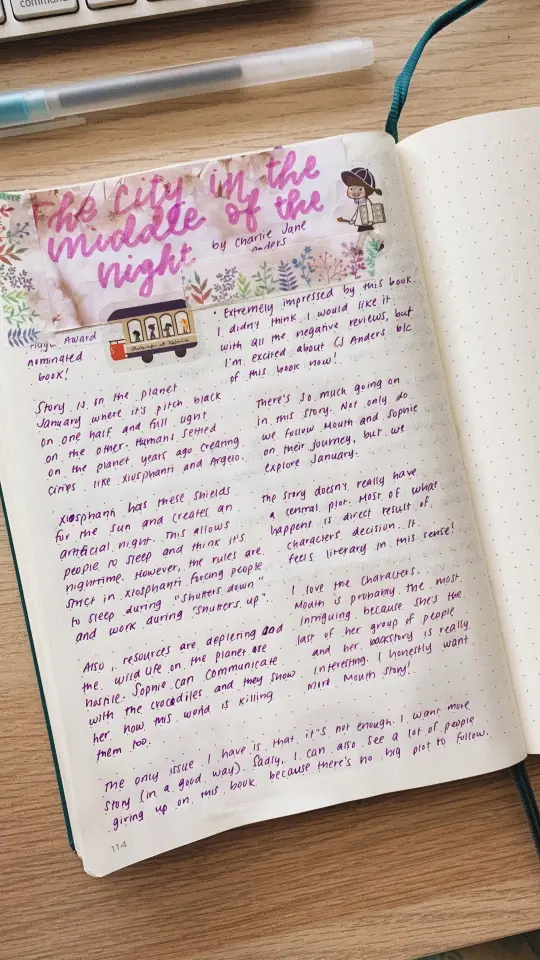 command
The City in the
Middle of the
Night
by Charlie Jane
Anders
Hugo Award
nominated
book!
Story is on the planet
January where it's pitch black
on one half and full light
on the other. Humans settled
on the planet years ago creating
cities like Xiosphanti and Argelo.
Xiosphanti has these shields
for the sun and creates an
artificial night. This allows
people to sleep and think it's
nighttime. However, the rules are
strict in Xiosphanti forcing people
to sleep during "shutters down"
and work during "shutters up".
Also, resources are depleting and
the wild life on the planet are
hostile. Sophie can communicate
with the crocodiles and they show
her how this world is killing
them too.
• Extremely impressed by this book.
I didn't think I would like it
with all the negative reviews, but
I'm excited about CJ Anders b/c
of this book now!
There's so much going on
in this story. Not only do
we follow Mouth and Sophie
on their journey, but we
explore January.
The story doesn't really have
a central plot. Most of what
happens is direct result of
characters decision. It
feels literary in this sense!
I love the characters.
Mouth is probably the most
intriguing because she's the
last of her group of people
and her backstory is really
interesting. I honestly want
more Mouth story!
The only issue I have is that it's not enough. I want more
story (in a good way). Sadly, I can also see a lot of people
giving up on this book because there's no big plot to follow.
114